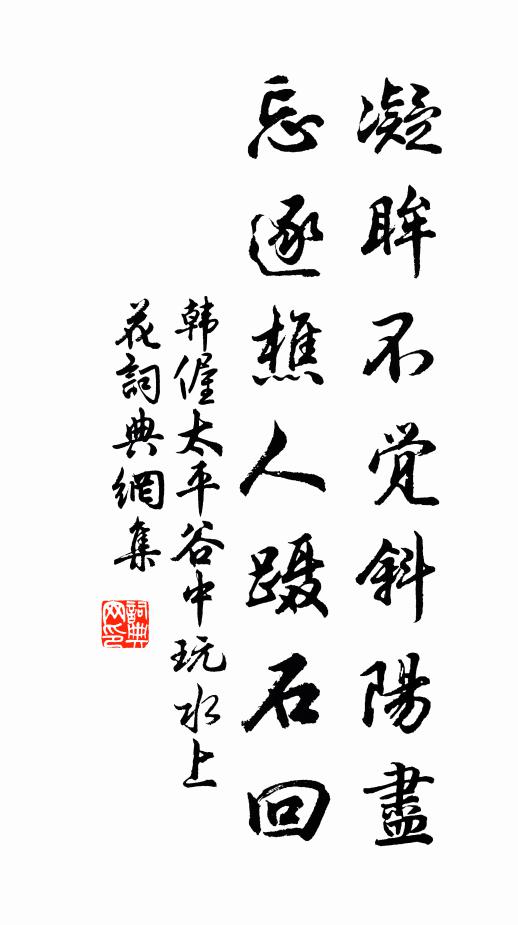 凝眸不觉斜陽盡
忘逐樵人蹑石回
韩偓太平谷中玩水上
花詞典網集
詞典网印